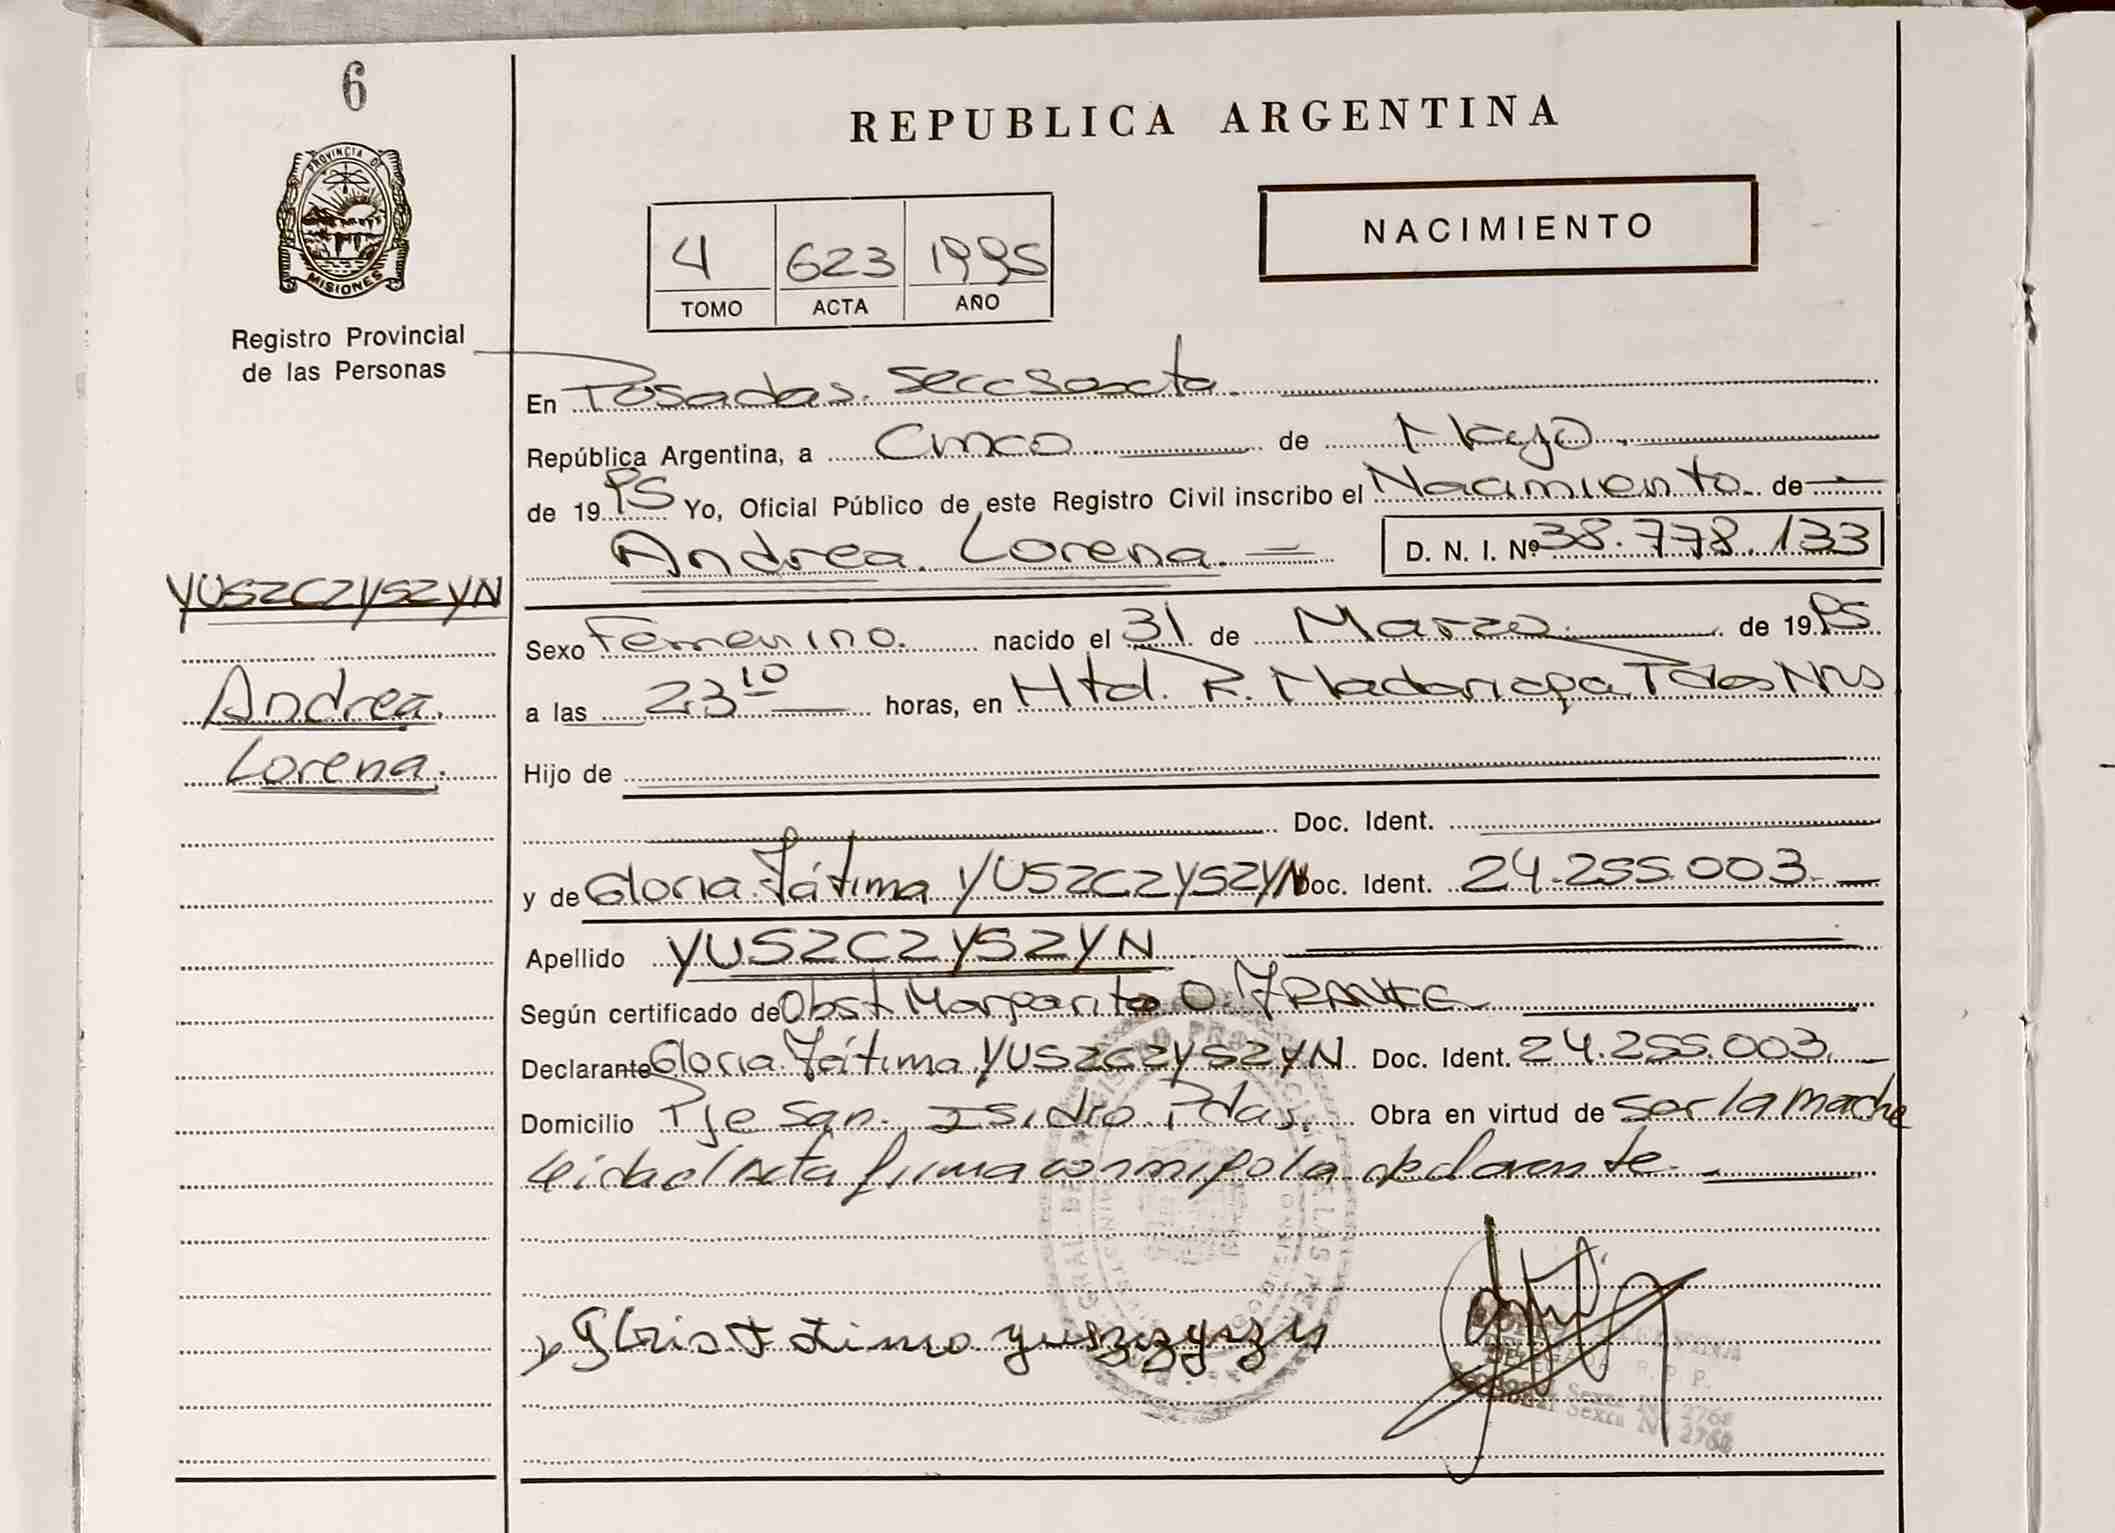 6
PROVINCIA DE
MISIONES
Registro Provincial
de las Personas
REPUBLICA ARGENTINA
NACIMIENTO
4 623 1995
TOMO ACTA AÑO
En Posadas. Secc Sexta
República Argentina, a Cinco de Mayo
de 1995 Yo, Oficial Público de este Registro Civil inscribo el Nacimiento de
Andrea Lorena D. N. I. Nº 38.778.133
YUSZCZYSZYN
Andrea
Lorena.
Sexo Femenino. nacido el 31 de Marzo de 1995
a las 23 10 horas, en Htal. R. Madariaga Pdas Mns
Hijo de
Doc. Ident.
y de Gloria Fátima YUSZCZYSZYN Doc. Ident. 24.255.003
Apellido YUSZCZYSZYN
Según certificado de Obst Margarita O.
Declarante Gloria Fátima YUSZCZYSZYN Doc. Ident. 24.255.003
Domicilio Pje San Isidro Pdas. Obra en virtud de ser la madre
leida el Acta firma conmigo la declarante
Gloria Fatima
R. P. P.
Seccional Sexta Nº 2768